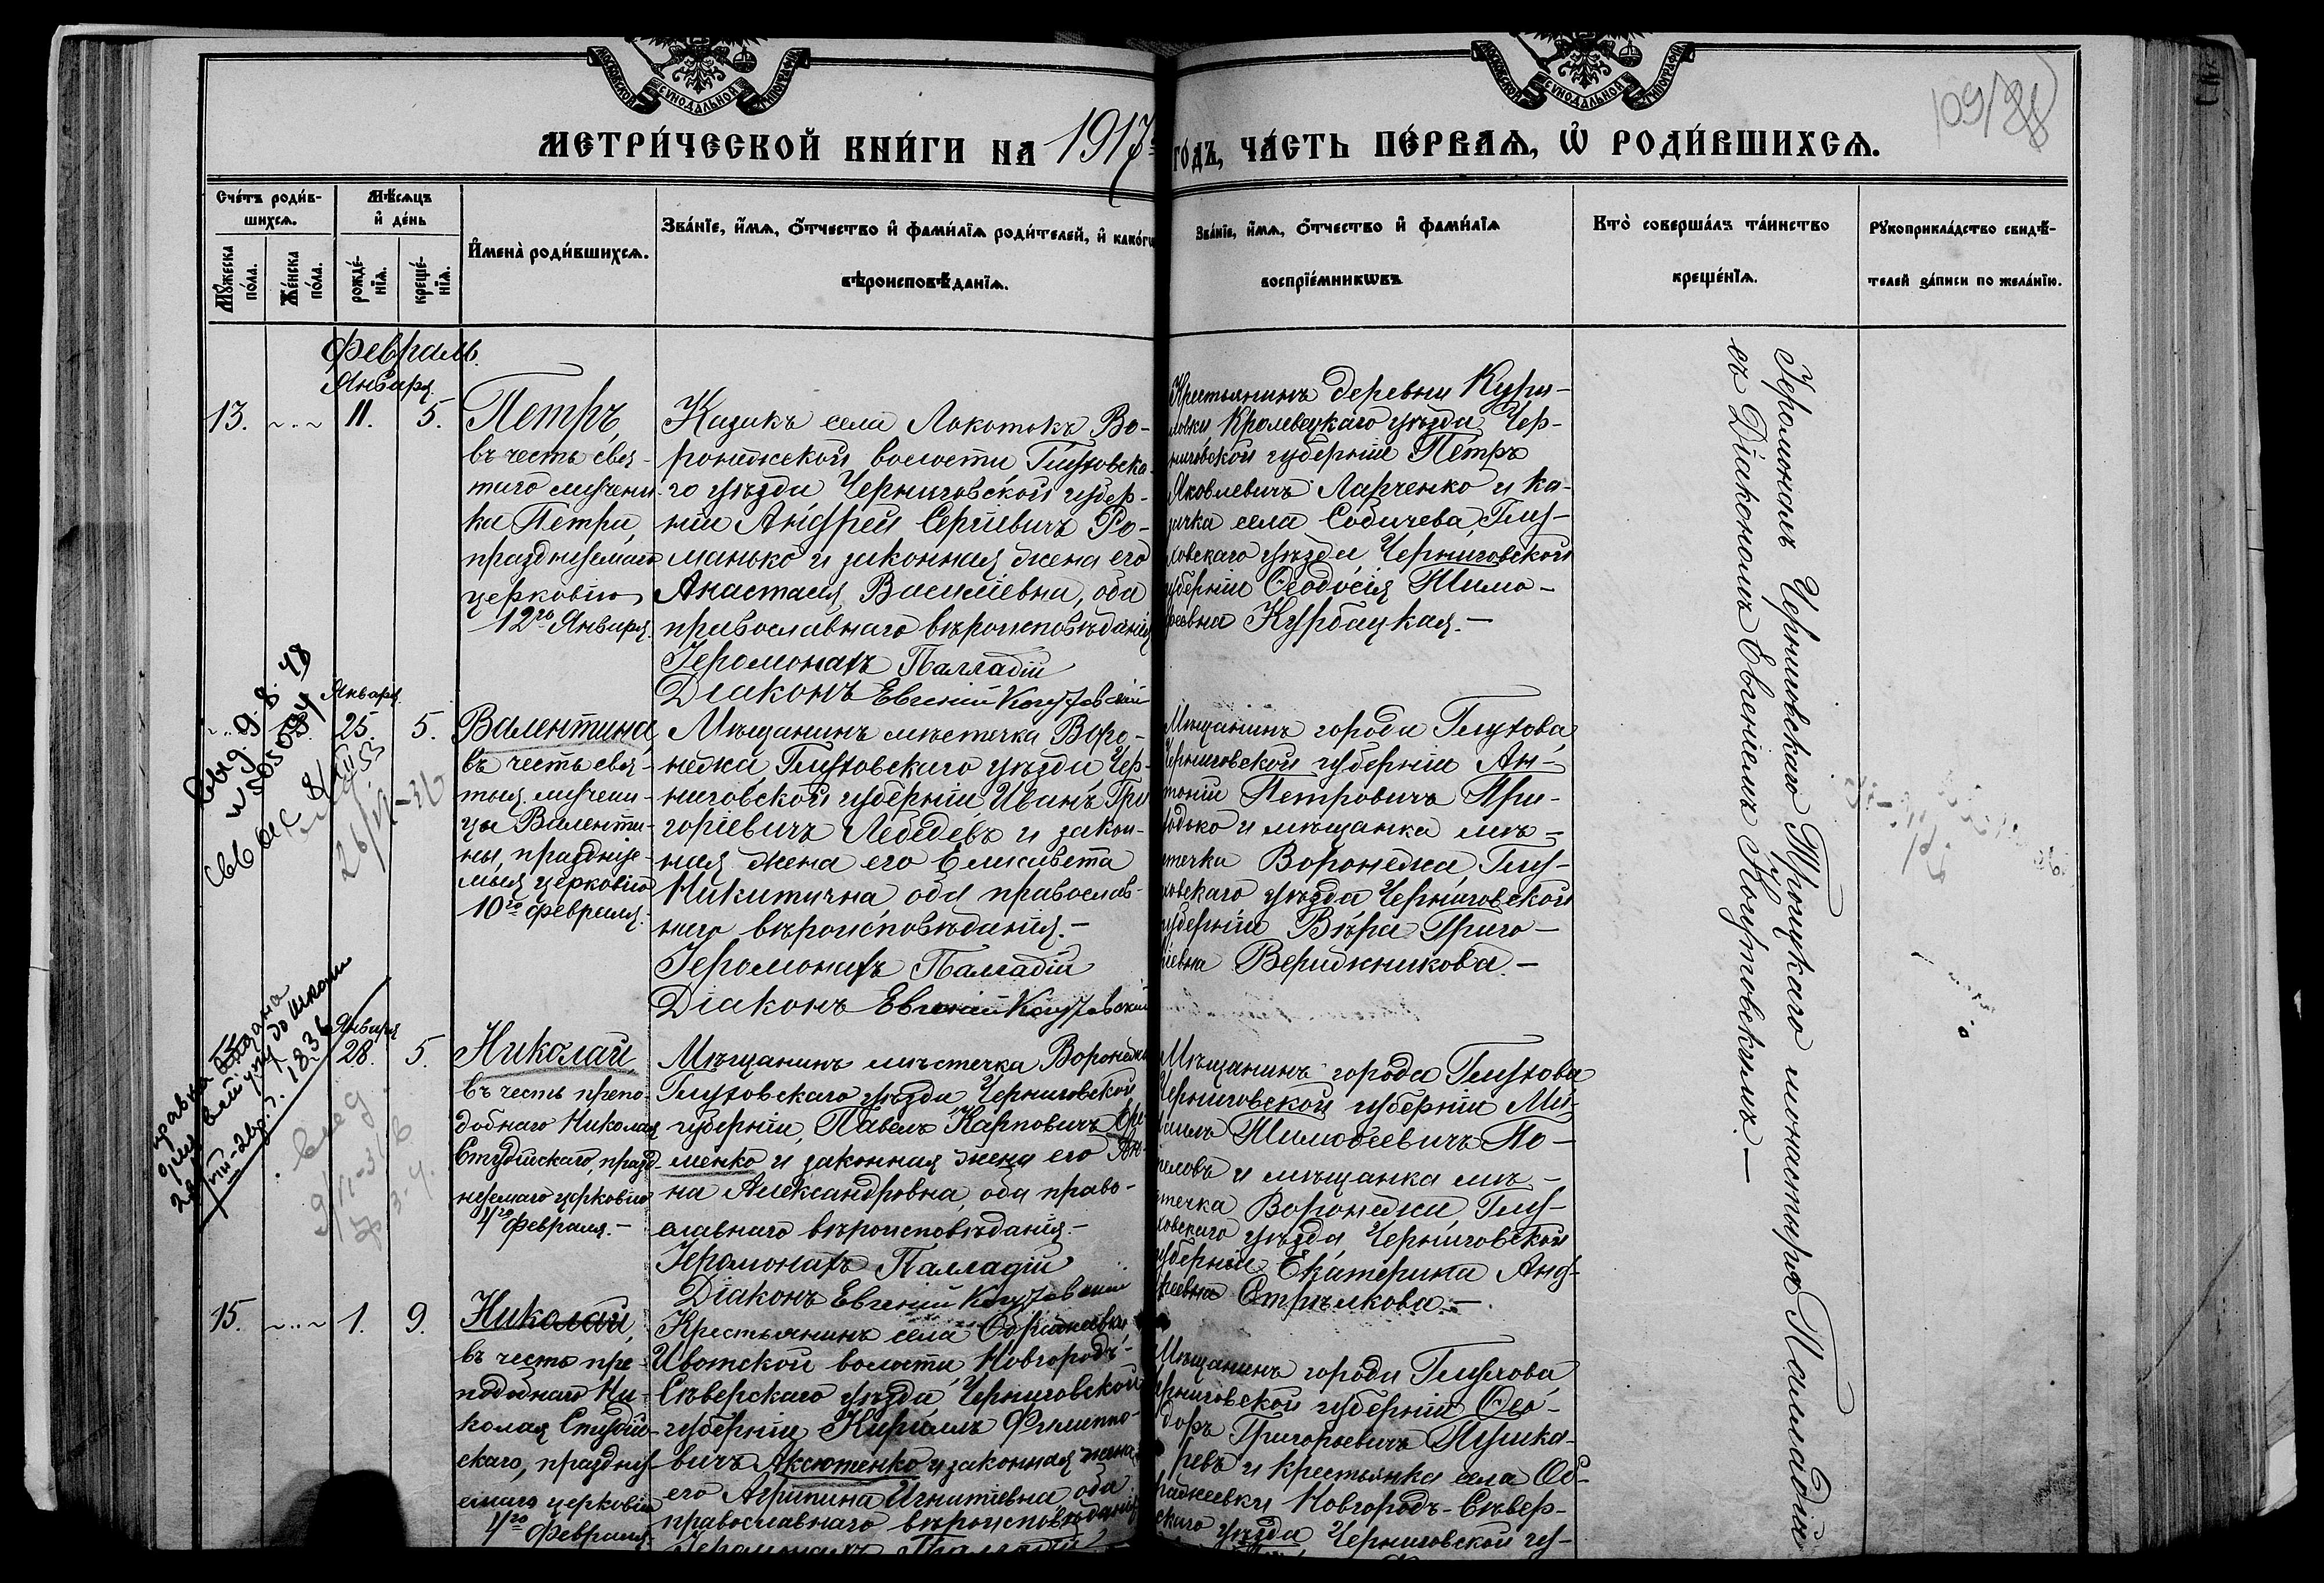 МОСКОВСКОЙ СѴНОДАЛЬНОЙ ТИПОГРАФІИ
МОСКОВСКОЙ СѴНОДАЛЬНОЙ ТИПОГРАФІИ
109
МЕТРИ́ЧЕСКОЙ КНИ́ГИ НА 1917 ГО́ДЪ, ЧА́СТЬ ПЕ́РВАѦ, Ѡ҆ РОДИ́ВШИХСѦ.
Сче́тъ роди́в-
шихсѧ.
Мꙋ́жеска по́ла.
Же́нска по́ла.
Мѣ́сѧцъ
и҆ де́нь
рожде́-нїѧ.
креще́-нїѧ.
И҆мена̀ роди́вшихсѧ.
Зва́нїе, и҆́мѧ, ѻ҆́тчество и҆ фами́лїѧ роди́телей, и҆ како́гѡ
вѣроисповѣ́данїѧ.
Зва́нїе, и҆́мѧ, ѻ҆́тчество и҆ фами́лїѧ
воспрїе́мникѡвъ
Кто̀ соверша́лъ та́инство
креще́нїѧ.
Рꙋкоприкла́дство свидѣ́-
телей за́писи по жела́нїю.
Февраль.
Января.
13. 11. 5.
Петръ
въ честь свя-
таго мучени-
ка Петра,
празднуемаго
церковію
12го Января.
Казакъ села Локотокъ Во-
ронежской волости Глуховска-
го уѣзда Черниговской губер-
ніи Андрей Сергіевичъ Ро-
манько и законная жена его
Анастасія Василіевна, оба
православнаго вѣроисповѣданія
Іеромонахъ Палладій
Діаконъ Евгеній
Крестьянинъ деревни
Кролевецкаго уѣзда Чер-
ниговской губерніи Петръ
Яковлевичъ Ларченко и ка-
зачка села Собичева Глу-
ховскаго уѣзда Черниговской
губерніи Ѳеодосія Тимо-
ѳеевна Курбацкая.—
Іеромонахъ Черниговскаго Троицкаго монастыря Палладій
съ Діакономъ Евгеніемъ
Января
25. 5.
Валентина,
въ честь свя-
тыя мучени-
цы Валенти-
ны, праздгуе-
мыя церковію
10го Февраля.
Мѣщанинъ мѣстечка Воро-
нежа Глуховскаго уѣзда Чер-
ниговской губерніи Иванъ Гри-
горіевичъ Лебедевъ и закон-
ная жена его Елисавета
Никитична, оба православ-
наго вѣроисповѣданія.—
Іеромонахъ Палладій
Діаконъ Евгеній
Мѣщанинъ города Глухова
Черниговской губерніи Ан-
тоній Петровичъ При-
ходько и мѣщанка мѣ-
стечка Воронежа, Глу-
ховскаго уѣзда Черниговской
губерніи Вѣра Григо-
ріевна
Января
28. 5.
Николай
въ честь препо-
добнаго Николая
Студійскаго, празд-
нуемаго церковію
4го Февраля.—
Мѣщанинъ мѣстечка Воронежа
Глуховскаго уѣзда Черниговской
губерніи, Павелъ Карповичъ
менко и законная жена его Ан-
на Александровна, оба право-
славнаго вѣроисповѣданія.—
Іеромонахъ Палладій
Діаконъ Евгеній
Мѣщанинъ города Глухова
Черниговской губерніи Ми-
хаилъ
и мѣщанка мѣ-
стечка Воронежа, Глу-
ховскаго уѣзда Черниговской
губерніи Екатерина Анд-
реевна Стрѣлкова.—
15. 1. 9.
Николай,
въ честь пре-
подобнаго Ни-
колая Студій-
скаго, праздну-
емаго церковію
4го Февраля.
Крестьянинъ села Ображеевки
Ивотской волости Новгородъ-
Сѣверскаго уѣзда Черниговской
губерніи Кириллъ Филиппо-
вичъ Аксютенко и законная жена
его Агрипина Игнатіевна, оба
православнаго вѣроисповѣданія
Іеромонахъ Палладій
Мѣщанинъ города Глухова
Черниговской губерніи Ѳео-
доръ Григорьевичъ Пушка-
ревъ и крестьянка села Об-
ражеевки Новгородъ-Сѣвер-
скаго уѣзда Черниговской гу-